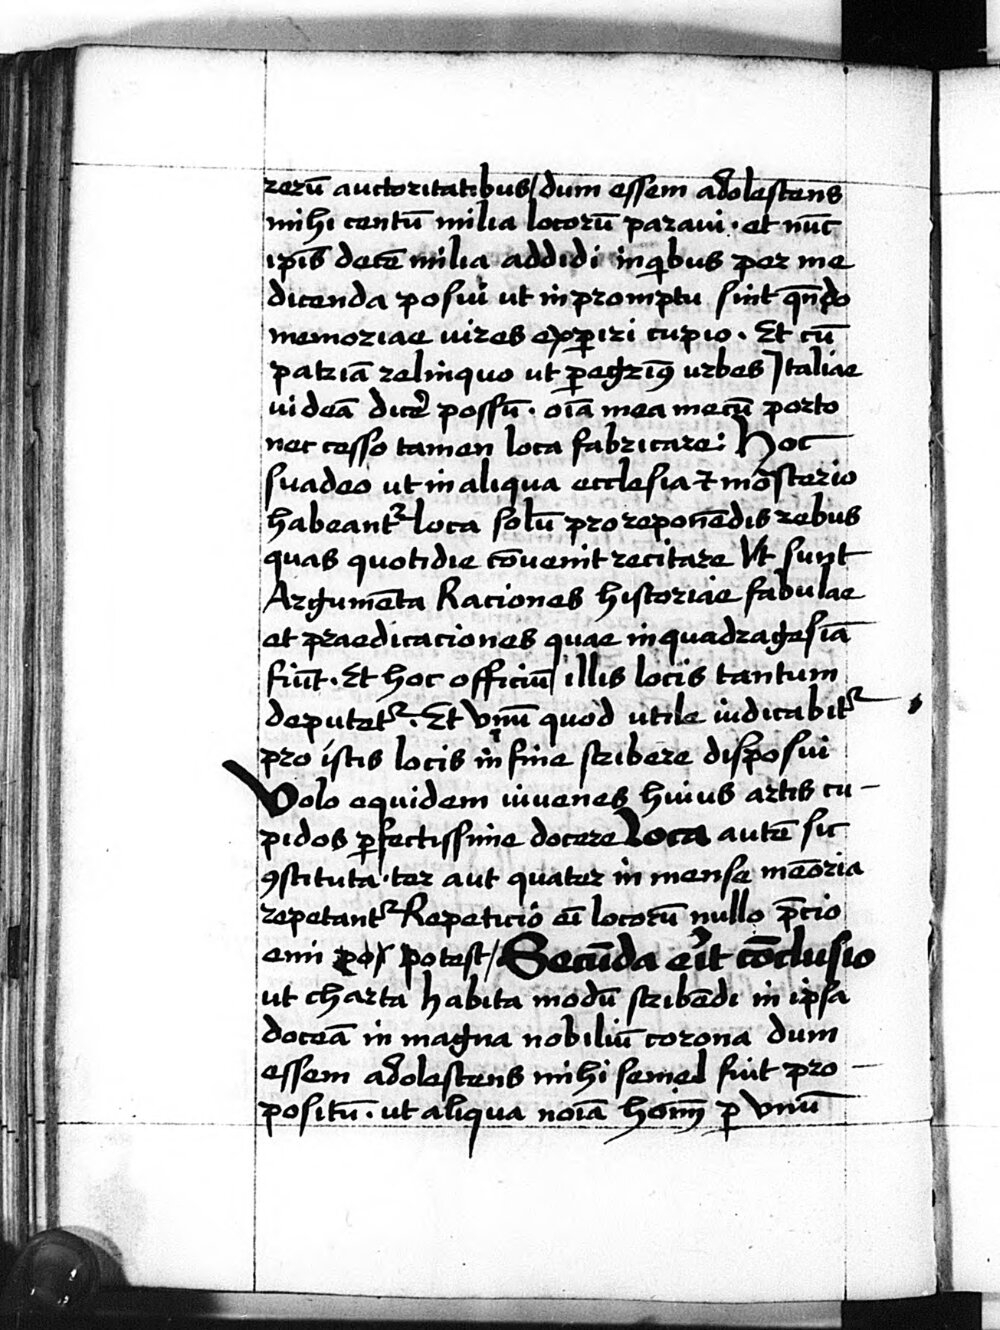 rerū auctoritatibus/dum essem adolescens
mihi centū milia locorū paraui · et nūc
ipis̄ decē milia addidi in q̄ibus per me
dicenda posui ut in promptu sint qn̄do
memoriae uires exꝑiri cupio · Et cū
patriā relinquo ut ꝑegrinꝰ urbes Italiae
uideā dicē possū · oīa mea mecū porto
nec cesso tamen loca fabricare: Hoc
suadeo ut in aliqua ecclesia ⁊ mōsterio
habeantᷣ loca solū pro reponēdis rebus
quas quotidie cōuenit recitare Vt sunt
Argumēta Raciones historiae fabulae
et praedicaciones quae in quadragesīa
fiūt · Et hoc officiū illis locis tantum
deputetᷣ · Et vnū quod utile iudicabitᷣ
pro istis locis in fine scribere disposui
Volo equidem iuuenes huius artis cu-
pidos ꝑfectissime docere Loca autē sic
ꝯstituta · ter aut quater in mense meōria
repetantᷣ Repeticio eī locorū nullo p̄cio
emi potest/ Secūda erit cōclusio
ut charta habita modū scribēdi in ipsa
doceā in magna nobiliū corona dum
essem adolescens mihi semel fuit pro-
positū · ut aliqua noīa hoīm ꝑ vnū